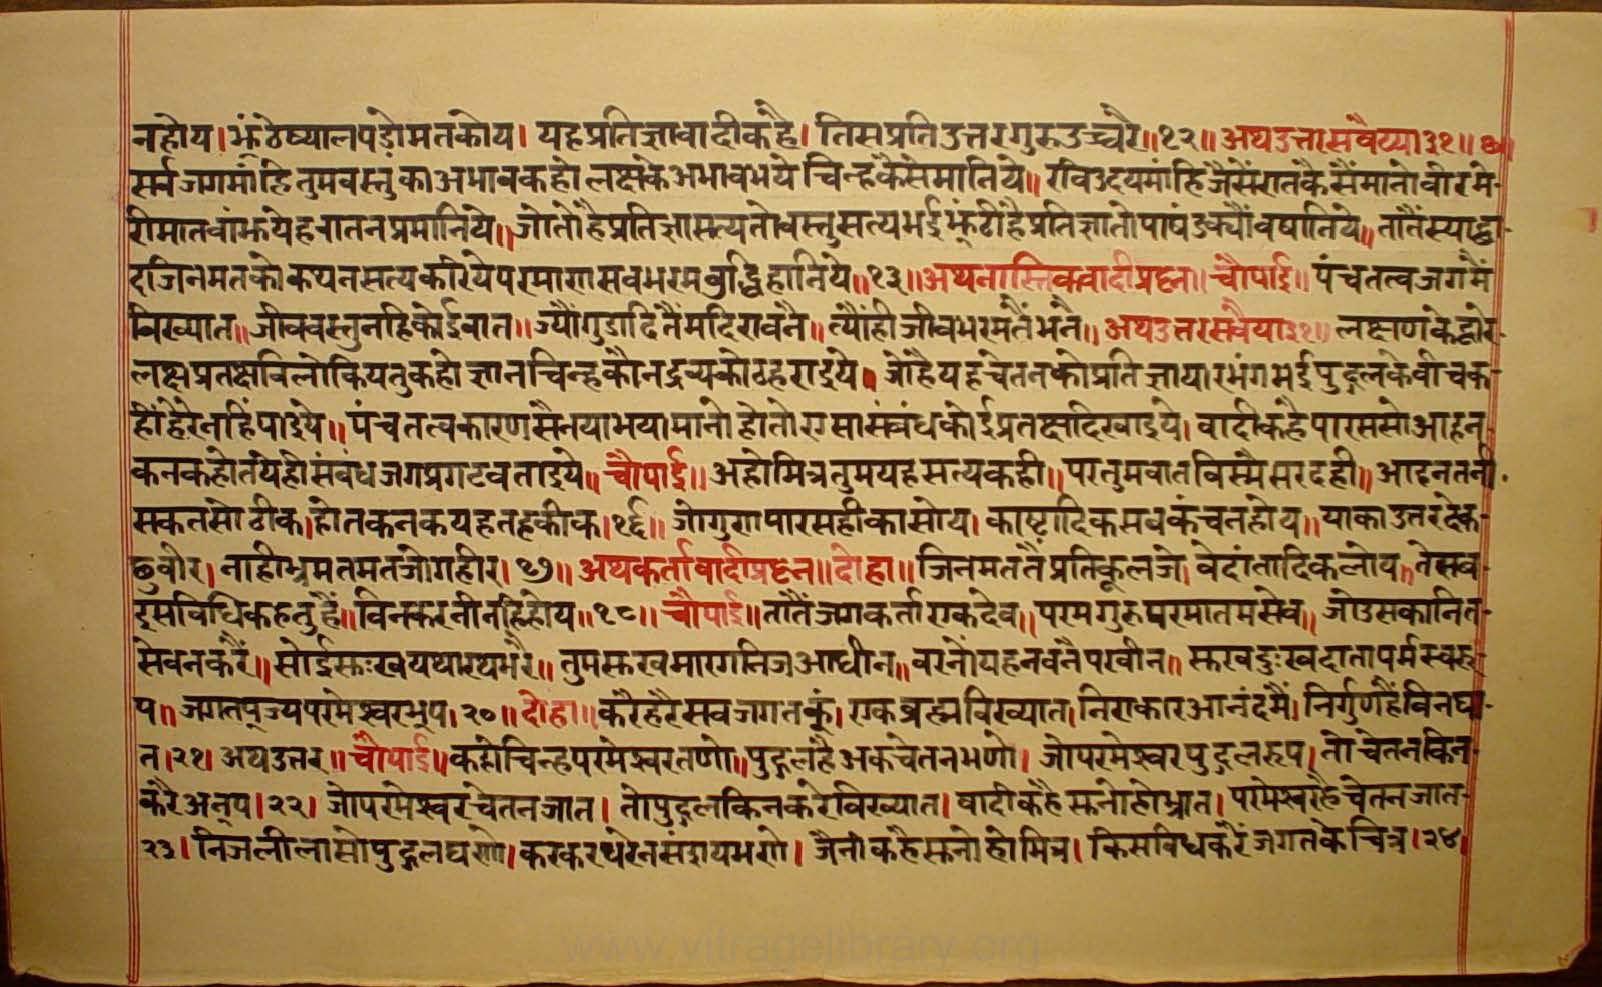 नहोय।झंठेष्यालपडोमतकोय। यहप्रतिज्ञावादीकहै। तिसप्रतिउत्तरगुरुउच्चरै॥१२॥ अथउत्तरसवैय्या३१॥
सर्वजगमांहितुमवस्तुकाअभावकहो लक्षकेअभावभयेचिन्हकैसेमानिये॥ रविउदयमांहिजैसेंरातकैसैंमानोवीरमे-
रीमातवांझयेहवातनप्रमानिये॥ जोतोहैप्रतिज्ञासत्यतोवस्तुसत्यभई झंठीहैप्रतिज्ञातोपाषंडक्यौंवषानिये॥ तातैंस्याद्वा-
दजिनमतकोकथनसत्यकरियेपरमाणसवभरमवुद्धिहानिये॥१३॥अथनास्तिकवादीप्रष्टन॥चौपाई॥ पंचतत्वजगमैं
विख्यात॥ जीववस्तुनहिकोईवात॥ ज्यौंगुडादितैंमदिरावनै॥ त्यौंहीजीवभरमतैंभनै॥ अथउत्तरसवैया३१॥ लक्षणकेद्वारे-
लक्षप्रतक्षविलोकियतुकहो ज्ञानचिन्हकौनद्रव्यकोठहराइये। जोहैयहचेतनकोप्रतिज्ञायारभंगभई पुद्गलकेवीचक-
हींहेरेनहिंपाइये॥ पंचतत्वकारणसैनयाभयामानोहोतोएसासंबंधकोईप्रतक्षदिखाइये। वादीकहैपारससोआहन-
कनकहोतयेहीसंबंधजगप्रगटवताइये॥ चौपाई॥ अहोमित्रतुमयहसत्यकही॥ परतुमवातविस्मैसरदही॥ आहनतनी-
सकतसोठीक।होतकनकयहतहकीक।१६॥ जोगुणपारसहीकासोय। काष्टादिकसवकंचनहोय॥ याकाउत्तरदेक-
छुवीर।नाहीभ्रमतमतजोगहीर।१७॥ अथकर्तावादीप्रष्टन॥दोहा॥ जिनमततैंप्रतिकूलजे। वेदांतादिकलोय॥ तेसव-
इसविधिकहतुहैं॥ विनकरनीनहिहोय॥१८॥ चौपाई॥ तातैंजगकर्ताएकदेव॥ परमगुरुपरमातमसेव॥ जोउसकानित-
सेवनकरैं॥ सोईसुःखयथारथभरै॥ तुमसुखमारगनिजआधीन॥ वरनोंयहनवनैपरवीन॥ सुखदुःखदातापर्मस्वरू-
प॥ जगतपूज्यपरमेस्वरभूप।२०॥दोहा॥ करैहरैसवजगतकूं। एकब्रह्मविख्यात।निराकारआनंदमैं। निर्गुणहैंविनघा-
त।२१। अथउत्तर॥चौपाई॥ कहोचिन्हपरमेस्वरतणो॥ पुद्गलहैअकचेतनभणो। जोपरमेस्वरपुद्गलरूप। तोचेतनकिन-
करैअनूप।२२। जोपरमेस्वरचेतनजात। तोपुद्गलकिनकरेविख्यात। वादीकहैसुनोहोभ्रात। परमेस्वरहैचेतनजात-
२३। निजलीलासोपुद्गलघणे। करकरथेरेनसंशयमणे। जैनीकहैसुनोहोमित्र। किसविधकरैंजगतकेचित्र।२४।